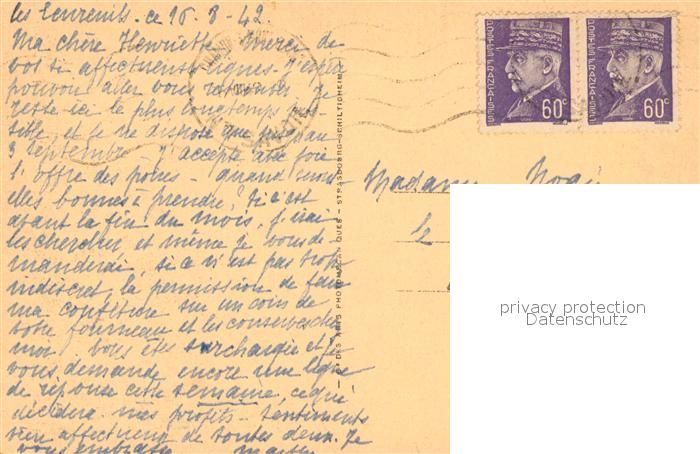 ce 16-8-42
Ma chère Henriette - Merci de
vos si affectueuses lignes - J'espère
pouvoir aller vous retrouver. Je
reste ici le plus longtemps pos-
sible, et je ne dispose que jusqu'au
3 septembre - J'accepte avec joie
l'offre des poires - quand seront
elles bonnes à prendre ? Si c'est
avant la fin du mois, j'irai
les chercher, et même je vous de-
manderai, si ce n'est pas trop
indiscret, la permission de faire
ma confiture sur un coin de
votre fourneau et les conserves chez
moi. Vous êtes surchargée et je
vous demande encore une ligne
de réponse cette semaine, ce qui
décidera mes projets - Sentiments
bien affectueux de toutes deux. Je
vous embrasse
Madame
POSTES FRANÇAISES
60c
POSTES FRANÇAISES
60c
STRASBOURG-SCHILTIGHEIM
privacy protection
Datenschutz